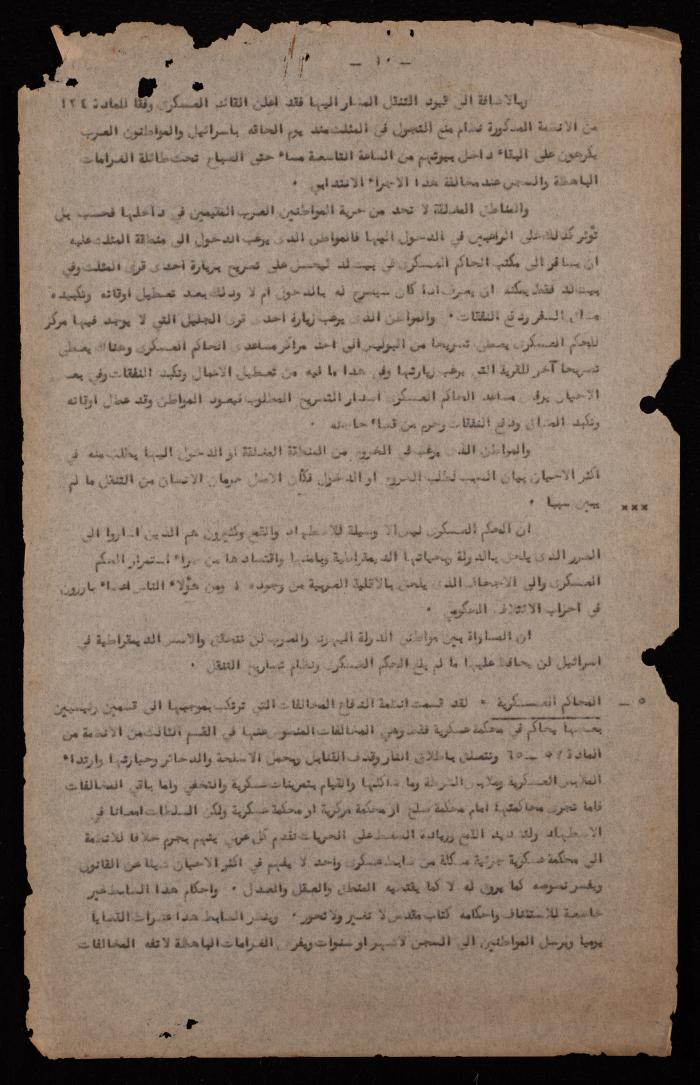 — ١٠ —
وبالاضافة الى قيود التنقل المشار اليها فقد اعلن القائد العسكرى وفقا للمادة ١٢٤
من الانظمة المذكورة نظام منع التجول في المثلث منذ يوم الحاقه باسرائيل والمواطنون العرب
يكرهون على البقاء داخل بيوتهم من الساعة التاسعة مساء حتى الصباح تحت طائلة الغرامات
الباهظة والسجن عند مخالفة هذا الاجراء الانتدابي .
والمناطق المغلقة لا تحد من حرية المواطنين العرب المقيمين في داخلها فحسب بل
تؤثر كذلك على الراغبين في الدخول اليها فالمواطن الذى يرغب الدخول الى منطقة المثلث عليه
ان يسافر الى مكتب الحاكم العسكرى في بيت لد ليحصل على تصريح بزيارة احدى قرى المثلث وفي
بيت لد فقط يمكنه ان يعرف اذا كان سيسمح له بالدخول ام لا وذلك بعد تعطيل اوقاته وتكبيده
مشاق السفر ودفع النفقات . والمواطن الذى يرغب زيارة احدى قرى الجليل التي لا يوجد فيها مركز
للحكم العسكرى يعطى تصريحا من البوليس الى احد مراكز مساعدى الحاكم العسكرى وهناك يعطى
تصريحا آخر للقرية التي يرغب زيارتها وفي هذا ما فيه من تعطيل الاعمال وتكبد النفقات وفي بعض
الاحيان يرفض مساعد الحاكم العسكرى اصدار التصريح المطلوب فيعود المواطن وقد عطل اوقاته
وتكبد المشاق ودفع النفقات وحرم من قضاء حاجته .
والمواطن الذى يرغب في الخروج من المنطقة المغلقة او الدخول اليها يطلب منه في
اكثر الاحيان بيان السبب لطلب الخروج او الدخول فكأن الاصل حرمان الانسان من التنقل ما لم
يبين سببا .
×××
ان الحكم العسكرى ليس الا وسيلة للاضطهاد والقمع وكثيرون هم الذين اشاروا الى
الضرر الذى يلحق بالدولة وبحياتها الديمقراطية وبامنها واقتصادها من جراء استمرار الحكم
العسكرى والى الاجحاف الذى يلحق بالاقلية العربية من وجوده ؛ ومن هؤلاء الناس اعضاء بارزون
في احزاب الائتلاف الحكومي .
ان المساواة بين مواطني الدولة اليهود والعرب لن تتحقق والاسس الديمقراطية في
اسرائيل لن يحافظ عليها ما لم يلغ الحكم العسكرى ونظام تصاريح التنقل .
٥ — المحاكم العسكرية • لقد قسمت انظمة الدفاع المخالفات التي ترتكب بموجبها الى قسمين رئيسيين
بعضها يحاكم في محكمة عسكرية فقط وهي المخالفات المنصوص عنها في القسم الثالث من الانظمة من
المادة ٥٧ — ٦٥ وتتعلق باطلاق النار وقذف القنابل وبحمل الاسلحة والذخائر وحيازتها وارتداء
الملابس العسكرية وملابس الشرطة وما شاكلها والقيام بتمرينات عسكرية والتخفي واما باقي المخالفات
فاما تجرى محاكمتها امام محكمة صلح او محكمة مركزية او محكمة عسكرية ولكن السلطات امعانا في
الاضطهاد ولتشديد القمع وزيادة الضغط على الحريات تقدم كل عربي يتهم بجرم خلافا للانظمة
الى محكمة عسكرية جزئية مشكلة من ضابط عسكرى واحد لا يفهم في اكثر الاحيان شيئا عن القانون
ويفسر نصوصه كما يروق له لا كما يقتضيه المنطق والعقل والعدل . واحكام هذا الضابط غير
خاضعة للاستئناف واحكامه كتاب مقدس لا تغير ولا تحور . وينظر الضابط هذا عشرات القضايا
يوميا ويرسل المواطنين الى السجن لاشهر او سنوات ويفرض الغرامات الباهظة لاتفه المخالفات